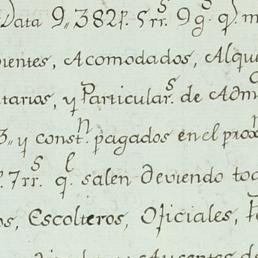 Data 9„382p. 5rr.s 9g.s q.
ientes, Acomodados, Alqu
tarios, y Particular.s de Adm
3„ y const.n pagados en el prox
7rr.s q.l salen deviendo to
os, Escolteros, Oficiales,